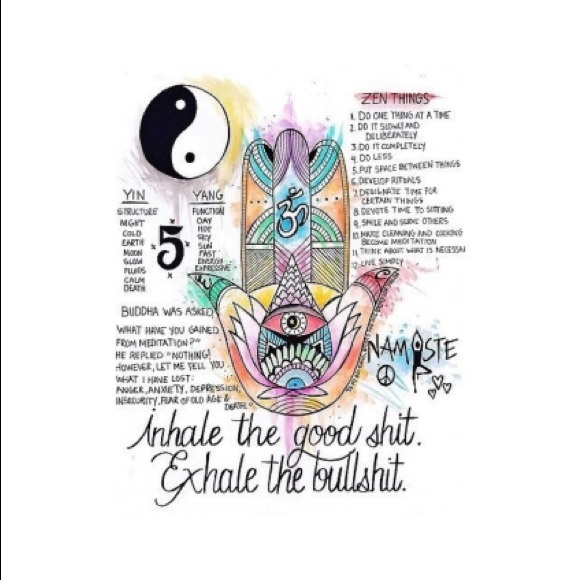 ZEN THINGS
1. DO ONE THING AT A TIME
2. DO IT SLOWLY AND
DELIBERATELY
3. DO IT COMPLETELY
4. DO LESS
5. PUT SPACE BETWEEN THINGS
6. DEVELOP RITUALS
7. DESIGNATE TIME FOR
CERTAIN THINGS
8. DEVOTE TIME TO SITTING
9. SMILE AND SERVE OTHERS
10. MAKE CLEANING AND COOKING
BECOME MEDITATION
11. THINK ABOUT WHAT IS NECESSAI
12. LIVE SIMPLY
ॐ
YIN
STRUCTURE
NIGHT
COLD
EARTH
MOON
SLOW
FLUIDS
CALM
DEATH
5
YANG
FUNCTION
DAY
HOT
SKY
SUN
FAST
ENERGY
EXPRESSIVE
BUDDHA WAS ASKED,
WHAT HAVE YOU GAINED
FROM MEDITATION?"
HE REPLIED "NOTHING!
HOWEVER, LET ME TELL YOU
WHAT I HAVE LOST:
ANGER, ANXIETY, DEPRESSION,
INSECURITY, FEAR OF OLD AGE &
DEATH."
NAMASTE
inhale the good shit.
Exhale the bullshit.